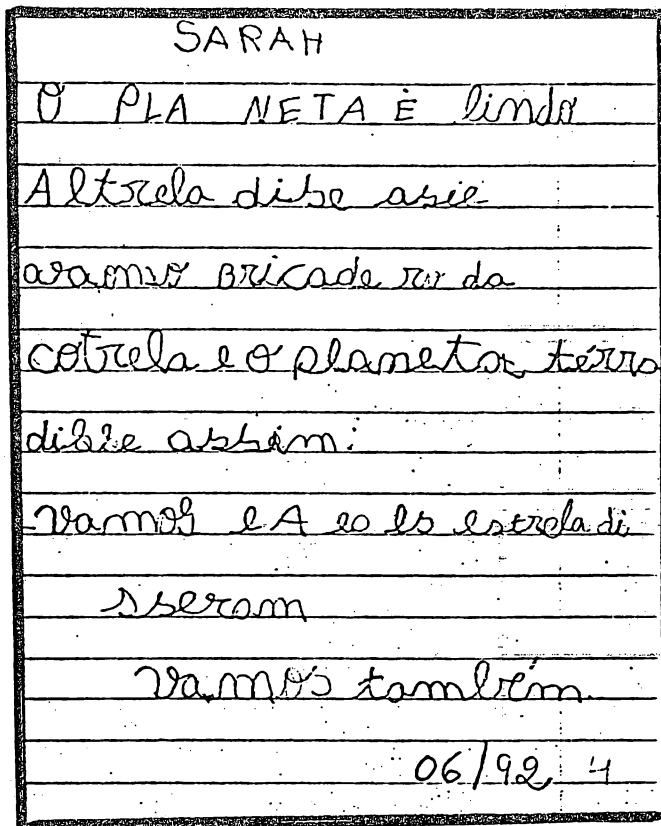 SARAH
O PLA NETA È lindo
A ltrela dise asie
avamso bricade ro da
cotrela e o planeta terra
disse assim:
-vamos e A eo ls estrela di
sseram
vamos também
06/92 4